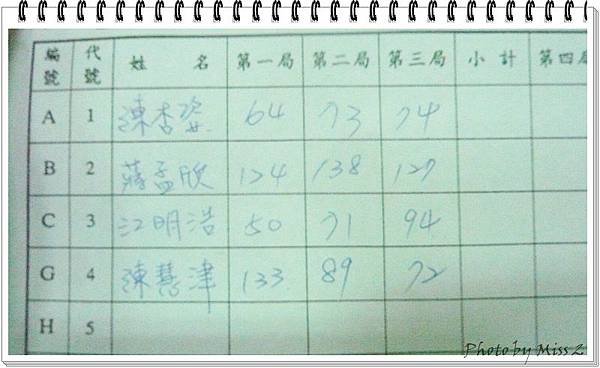 編號 代號 姓名 第一局 第二局 第三局 小計 第四局
A 1 陳杏姿 64 73 74
B 2 蔣孟欣 124 138 127
C 3 江明浩 50 71 94
G 4 陳慧津 133 89 72
H 5
Photo by Miss Z